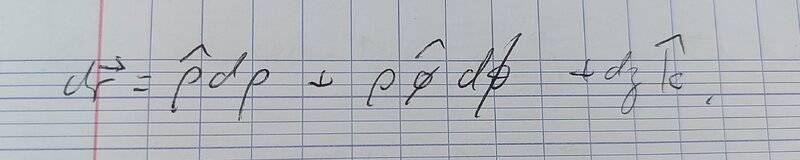 dr⃗ = ρ̂ dρ + ρ φ̂ dφ + dz k̂.